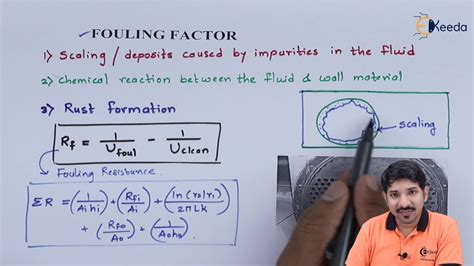 FOULING FACTOR
Ekeeda
1) Scaling / deposits caused by impurities in the fluid
2) Chemical reaction between the fluid & wall material
3) Rust formation
scaling
Rf = 1/Ufoul - 1/Uclean
Fouling Resistance.
ΣR = (1/Aihi) + (Rfi/Ai) + (ln(ro/ri)/2πLk)
+ (Rfo/Ao) + (1/Aoho)